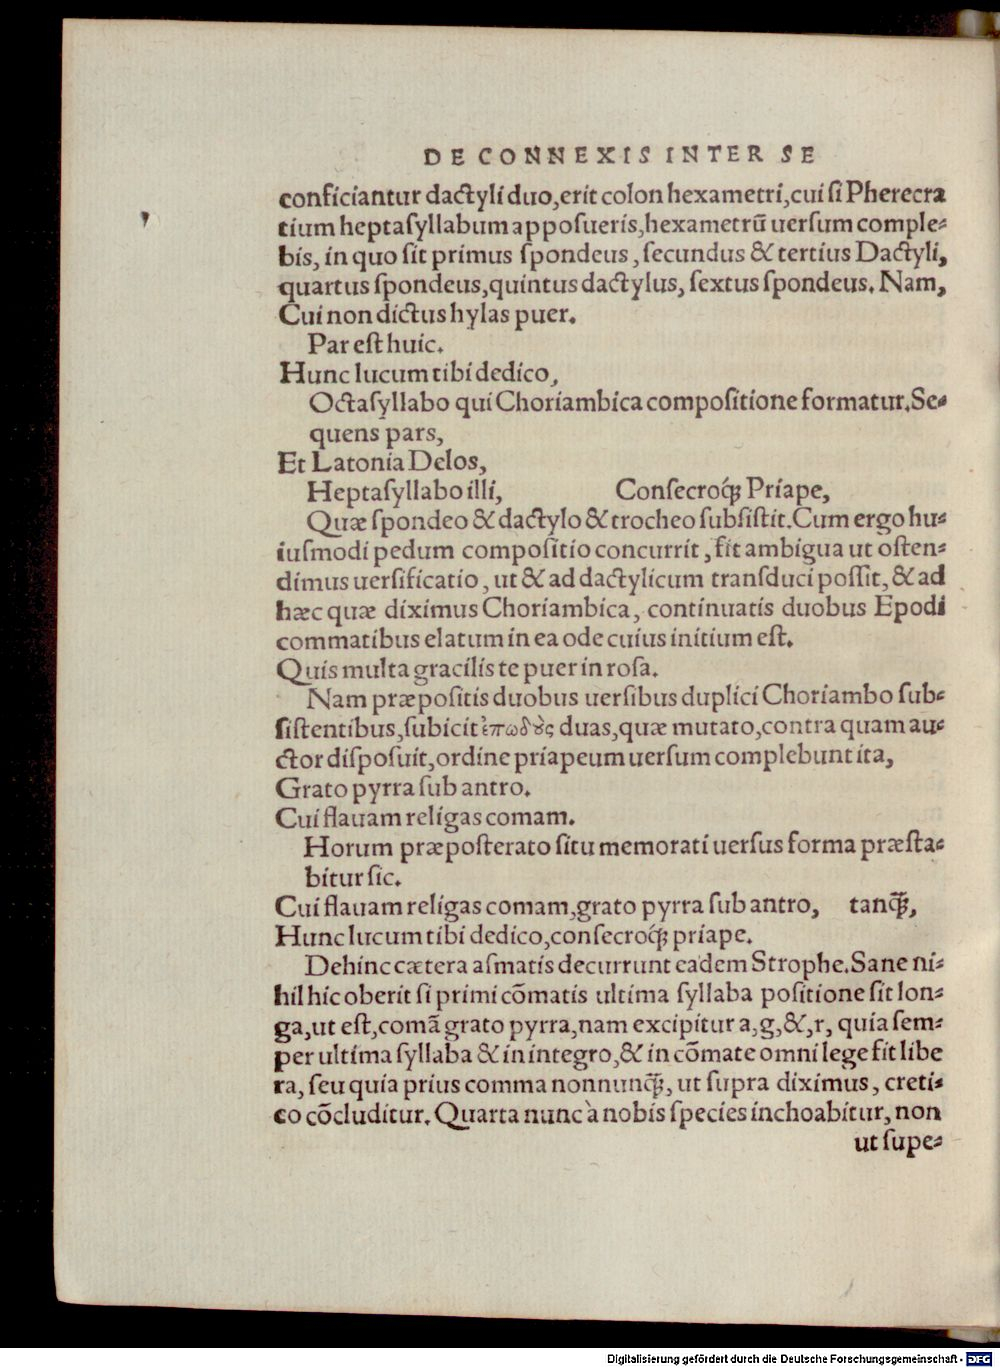 DE CONNEXIS INTER SE
conficiantur dactyli duo,erit colon hexametri,cui ſi Pherecra
tium heptaſyllabum appoſueris,hexametrũ uerſum comple-
bis, in quo ſit primus ſpondeus, ſecundus & tertius Dactyli,
quartus ſpondeus,quintus dactylus, ſextus ſpondeus. Nam,
Cui non dictus hylas puer.
Par eſt huic.
Hunc lucum tibi dedico,
Octaſyllabo qui Choriambica compoſitione formatur.Se-
quens pars,
Et Latonia Delos,
Heptaſyllabo illi, Conſecroq́ꝫ Priape,
Quæ ſpondeo & dactylo & trocheo ſubſiſtit.Cum ergo hu-
iuſmodi pedum compoſitio concurrit, fit ambigua ut oſten-
dimus uerſificatio, ut & ad dactylicum tranſduci poſſit, & ad
hæc quæ diximus Choriambica, continuatis duobus Epodi
commatibus elatum in ea ode cuius initium eſt.
Quis multa gracilis te puer in roſa.
Nam præpoſitis duobus uerſibus duplici Choriambo ſub-
ſiſtentibus,ſubicit ἐπωδȣ̀ς duas,quæ mutato,contra quam au-
ctor diſpoſuit,ordine priapeum uerſum complebunt ita,
Grato pyrra ſub antro.
Cui flauam religas comam.
Horum præpoſterato ſitu memorati uerſus forma præſta-
bitur ſic.
Cui flauam religas comam,grato pyrra ſub antro, tanq̃ꝫ,
Hunc lucum tibi dedico,conſecroq́ꝫ priape.
Dehinc cætera aſmatis decurrunt eadem Strophe.Sane ni-
hil hic oberit ſi primi cõmatis ultima ſyllaba poſitione ſit lon-
ga,ut eſt,comã grato pyrra,nam excipitur a,g,&,r, quia ſem-
per ultima ſyllaba & in integro,& in cõmate omni lege fit libe
ra, ſeu quia prius comma nonnunq̃ꝫ, ut ſupra diximus, creti-
co cõcluditur. Quarta nunc à nobis ſpecies inchoabitur, non
ut ſupe-
Digitalisierung gefördert durch die Deutsche Forschungsgemeinschaft - DFG